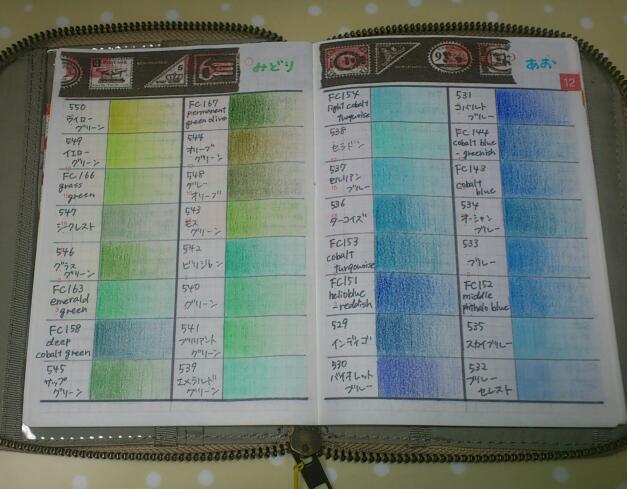 みどり
550
イエロー
グリーン
549
イエロー
グリーン
FC166
grass
green
547
ジークレスト
546
グラス
グリーン
FC163
emerald
green
FC158
deep
cobalt green
545
サップ
グリーン
FC167
permanent
green olive
544
オリーブ
グリーン
548
グレー
オリーブ
543
モス
グリーン
542
ビリジャン
540
グリーン
541
ブリリアント
グリーン
539
エメラルド
グリーン
あお
12
FC154
light cobalt
turquoise
538
セラドン
537
セルリアン
ブルー
536
ターコイズ
FC153
cobalt
turquoise
FC151
helioblue
-reddish
529
インディゴ
530
バイオレット
ブルー
531
コバルト
ブルー
FC144
cobalt blue
-greenish
FC143
cobalt
blue
534
オーシャン
ブルー
533
ブルー
FC152
middle
phthalo blue
535
スカイブルー
532
ブルー
セレスト